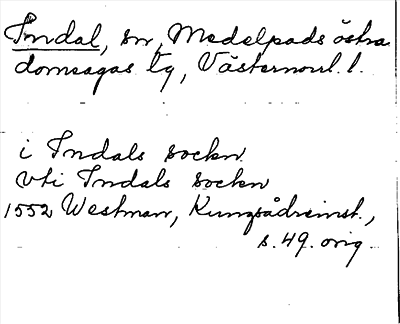 Indal, sn, Medelpads östra
domsagas tg, Västernorrl. l.
i Indals sockn
vti Indals sockn
1552 Westman, Kungsådreinst.,
s. 49. orig.